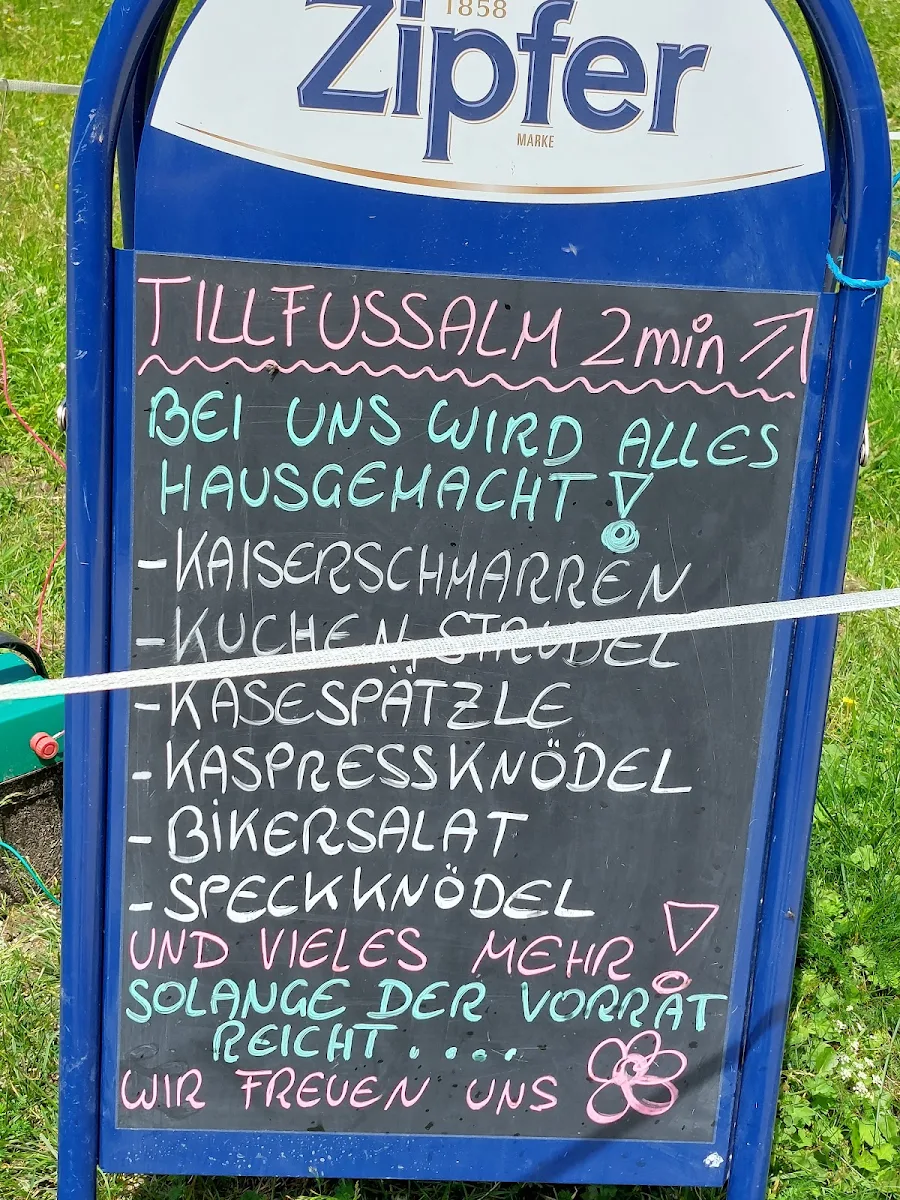 1858
Zipfer
MARKE
TILLFUSSALM 2min
BEI UNS WIRD ALLES
HAUSGEMACHT!
-KAISERSCHMARREN
-KUCHEN, STRUDEL
-KÄSESPÄTZLE
-KASPRESSKNÖDEL
-BIKERSALAT
-SPECKKNÖDEL
UND VIELES MEHR!
SOLANGE DER VORRAT
REICHT.....
WIR FREUEN UNS